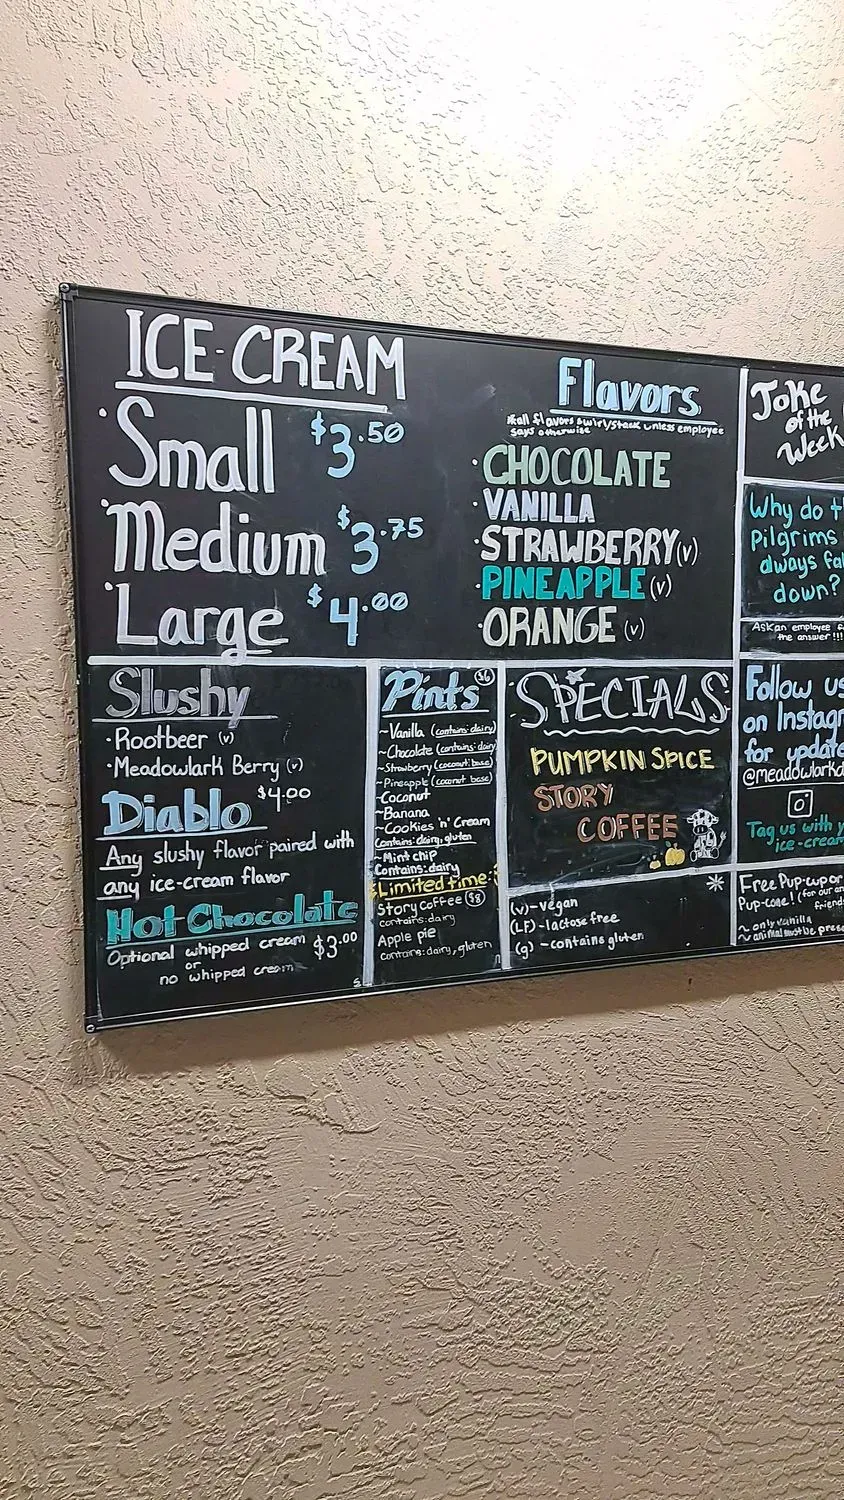 ICE-CREAM
·Small $3.50
·Medium $3.75
·Large $4.00
Flavors
*all flavors swirl/stack unless employee
says otherwise
·CHOCOLATE
·VANILLA
·STRAWBERRY (v)
·PINEAPPLE (v)
·ORANGE (v)
Joke
of the
Week
Why do t
Pilgrims
always fa
down?
Ask an employee f
the answer!!!
Slushy
·Rootbeer (v)
·Meadowlark Berry (v)
Diablo $4.00
Any slushy flavor paired with
any ice-cream flavor
Hot Chocolate
Optional whipped cream $3.00
or
no whipped cream
Pints $6
~Vanilla (contains: dairy)
~Chocolate (contains: dairy)
~Strawberry (coconut base)
~Pineapple (coconut base)
~Coconut
~Banana
~Cookies 'n' Cream
Contains: dairy, gluten
~Mint chip
Contains: dairy
Limited time:
Story Coffee $8
contains: dairy
Apple pie
contains: dairy, gluten
SPECIALS
PUMPKIN SPICE
STORY
COFFEE
(v)-vegan
(LF)-lactose free
(g)-contains gluten
Follow us
on Instagr
for update
@meadowlarkd
Tag us with y
ice-cream
Free Pup-cup or
Pup-cone! (for our an
friends
~only vanilla
~animal must be prese